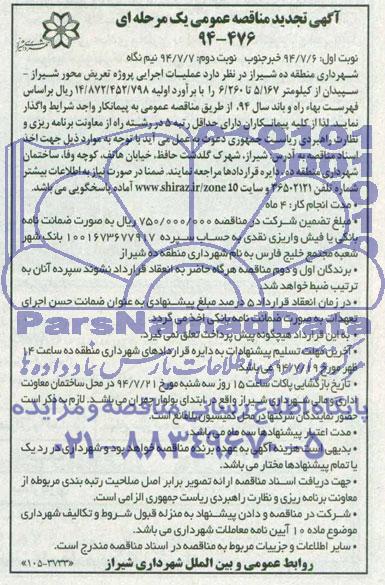 آگهی تجدید مناقصه عمومی یک مرحله ای
۹۴-۴۷۶
نوبت اول: ۹۴/۷/۶ خبرجنوب نوبت دوم: ۹۴/۷/۷ نیم نگاه
شهرداری منطقه ده شیراز در نظر دارد عملیات اجرایی پروژه تعریض محور شیراز -
سپیدان از کیلومتر ۵/۱۶۷ تا ۶/۲۶۰ را با برآورد اولیه ۱۴/۸۷۲/۴۵۲/۷۹۸ ریال براساس
فهرست بهاء راه و باند سال ۹۴، از طریق مناقصه عمومی به پیمانکار واجد شرایط واگذار
نماید. لذا از کلیه پیمانکاران دارای حداقل رتبه ۵ در رشته راه از معاونت برنامه ریزی و
نظارت راهبردی ریاست جمهوری دعوت به عمل می آید با توجه به موارد ذیل جهت اخذ
اسناد مناقصه به آدرس: شیراز، شهرک گلدشت حافظ، خیابان هاتف، کوچه وفا، ساختمان
شهرداری منطقه ده، دایره قراردادها مراجعه نمایند. ضمنا در صورت نیاز به اطلاعات بیشتر
شماره تلفن ۲۱۲۱-۳۶۵ و سایت www.shiraz.ir/zone 10 آماده پاسخگویی می باشد.
- مدت انجام کار: ۴ ماه
- مبلغ تضمین شرکت در مناقصه ۷۵۰/۰۰۰/۰۰۰ ریال به صورت ضمانت نامه
بانکی یا فیش واریزی نقدی به حساب سپرده ۱۰۰۱۶۷۳۶۷۷۹۱۷ بانک شهر
شعبه مجتمع خلیج فارس به نام شهرداری منطقه ده شیراز
- برندگان اول و دوم مناقصه هرگاه حاضر به انعقاد قرارداد نشوند سپرده آنان به
ترتیب ضبط خواهد شد.
- در زمان انعقاد قرارداد ۵ درصد مبلغ پیشنهادی به عنوان ضمانت حسن اجرای
تعهدات به صورت ضمانت نامه بانکی اخذ می گردد.
- به این قرارداد هیچگونه پیش پرداخت تعلق نمی گیرد.
- آخرین مهلت تسلیم پیشنهادات به دایره قراردادهای شهرداری منطقه ده ساعت ۱۴
ظهر مورخ ۹۴/۷/۱۹ می باشد.
- تاریخ بازگشایی پاکات ساعت ۱۵ روز سه شنبه مورخ ۹۴/۷/۲۱ در محل ساختمان معاونت
مالی شهرداری شیراز واقع در ابتدای بولوار چمران می باشد. لازم به ذکر است
حضور نمایندگان شرکتها در محل کمیسیون بلامانع است.
- مدت اعتبار پیشنهادها سه ماه می باشد.
- بدیهی است هزینه آگهی به عهده برنده مناقصه خواهد بود و شهرداری در رد یک
یا تمام پیشنهادها مختار می باشد.
- جهت دریافت اسناد مناقصه ارائه تصویر برابر اصل صلاحیت رتبه بندی مربوطه از
معاونت برنامه ریزی و نظارت راهبردی ریاست جمهوری الزامی است.
- شرکت در مناقصه و دادن پیشنهاد به منزله قبول شروط و تکالیف شهرداری
موضوع ماده ۱۰ آیین نامه معاملات شهرداری می باشد.
- سایر اطلاعات و جزییات مربوط به مناقصه در اسناد مناقصه مندرج است.
روابط عمومی و بین الملل شهرداری شیراز
«۱۰۵-۳۷۳۳»
ParsNamadData
پایگاه اطلاع رسانی مناقصه و مزایده
۰۲۱-۸۸۳۴۹۶۷۰-۵